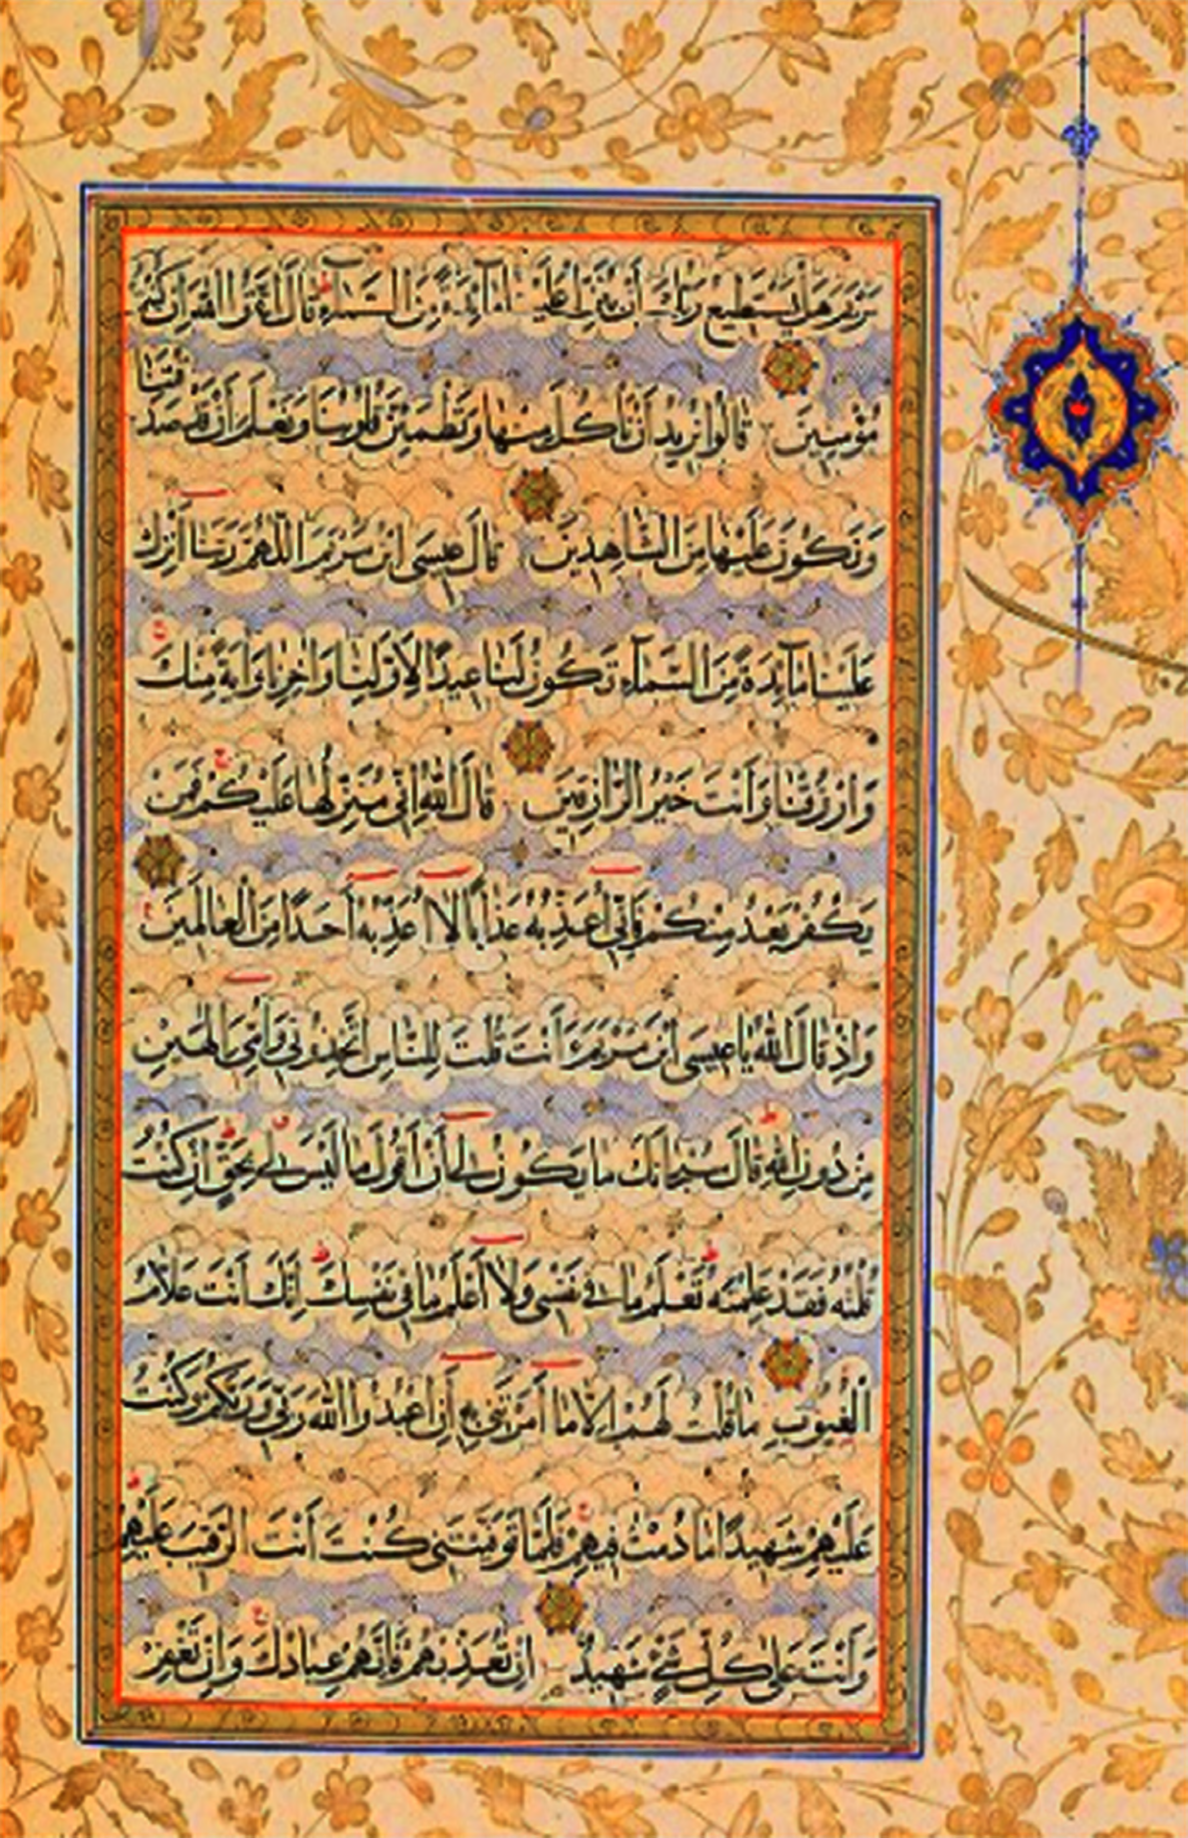 مَرْيَمَ هَلْ يَسْتَطِيعُ رَبُّكَ أَنْ يُنَزِّلَ عَلَيْنَا مَآئِدَةً مِنَ السَّمَآءِ قَالَ اتَّقُوا اللهَ إِنْ كُنْتُمْ
مُؤْمِنِينَ قَالُوا نُرِيدُ أَنْ نَأْكُلَ مِنْهَا وَتَطْمَئِنَّ قُلُوبُنَا وَنَعْلَمَ أَنْ قَدْ صَدَقْتَنَا
وَنَكُونَ عَلَيْهَا مِنَ الشَّاهِدِينَ قَالَ عِيسَى ابْنُ مَرْيَمَ اللّٰهُمَّ رَبَّنَا أَنْزِلْ
عَلَيْنَا مَآئِدَةً مِنَ السَّمَآءِ تَكُونُ لَنَا عِيدًا لِأَوَّلِنَا وَاٰخِرِنَا وَاٰيَةً مِنْكَ
وَارْزُقْنَا وَأَنْتَ خَيْرُ الرَّازِقِينَ قَالَ اللهُ إِنِّي مُنَزِّلُهَا عَلَيْكُمْ فَمَنْ
يَكْفُرْ بَعْدُ مِنْكُمْ فَإِنِّي أُعَذِّبُهُ عَذَابًا لَا أُعَذِّبُهُ أَحَدًا مِنَ الْعَالَمِينَ
وَإِذْ قَالَ اللهُ يَا عِيسَى ابْنَ مَرْيَمَ ءَأَنْتَ قُلْتَ لِلنَّاسِ اتَّخِذُونِي وَأُمِّيَ إِلٰهَيْنِ
مِنْ دُونِ اللهِ قَالَ سُبْحَانَكَ مَا يَكُونُ لِي أَنْ أَقُولَ مَا لَيْسَ لِي بِحَقٍّ إِنْ كُنْتُ
قُلْتُهُ فَقَدْ عَلِمْتَهُ تَعْلَمُ مَا فِي نَفْسِي وَلَا أَعْلَمُ مَا فِي نَفْسِكَ إِنَّكَ أَنْتَ عَلَّامُ
الْغُيُوبِ مَا قُلْتُ لَهُمْ إِلَّا مَا أَمَرْتَنِي بِهِ أَنِ اعْبُدُوا اللهَ رَبِّي وَرَبَّكُمْ وَكُنْتُ
عَلَيْهِمْ شَهِيدًا مَا دُمْتُ فِيهِمْ فَلَمَّا تَوَفَّيْتَنِي كُنْتَ أَنْتَ الرَّقِيبَ عَلَيْهِمْ
وَأَنْتَ عَلَى كُلِّ شَيْءٍ شَهِيدٌ إِنْ تُعَذِّبْهُمْ فَإِنَّهُمْ عِبَادُكَ وَإِنْ تَغْفِرْ